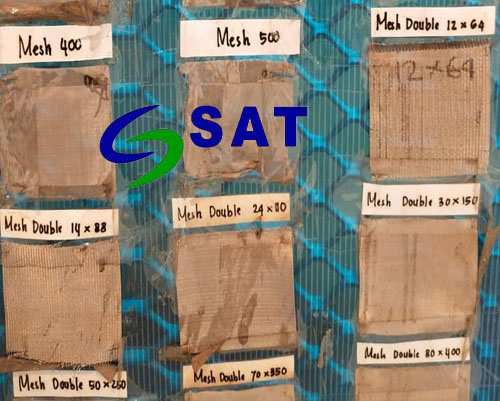 Mesh 400
Mesh 500
Mesh Double 12 x 64
12x64
SAT
Mesh Double 14 x 88
Mesh Double 24 x 110
Mesh Double 30 x 150
Mesh Double 50 x 250
Mesh Double 70 x 350
Mesh Double 80 x 400